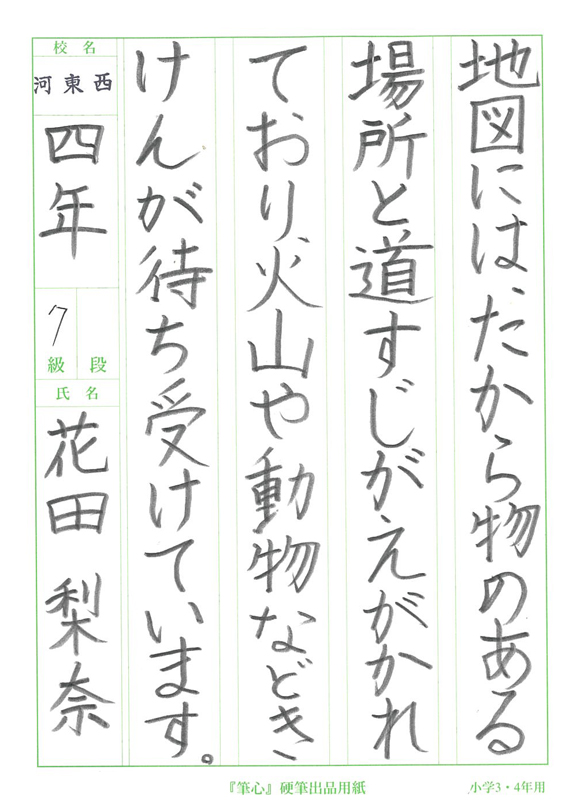 地図には、たから物のある
場所と道すじがえがかれ
ており、火山や動物などき
けんが待ち受けています。
校名
河東西
四年
7
級 段
氏名
花田 梨奈
『筆心』硬筆出品用紙
小学3・4年用